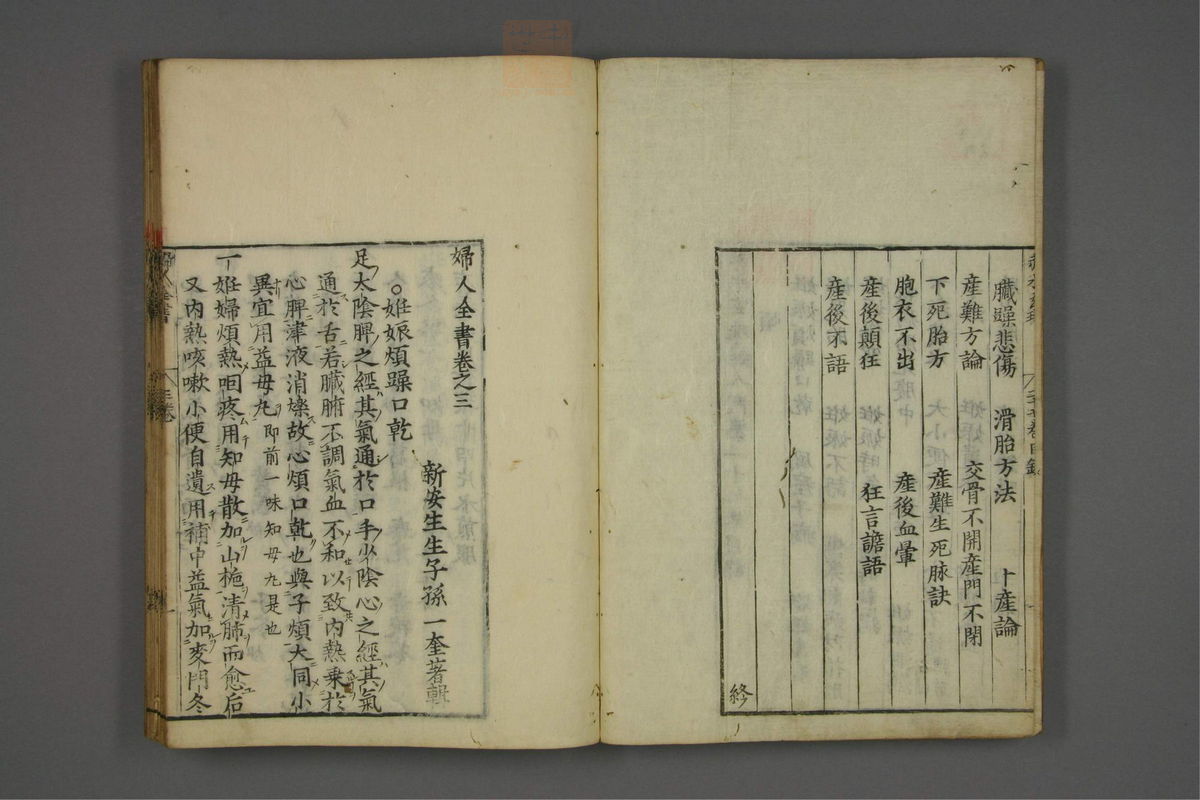 臟躁悲傷　滑胎方法　十產論
產難方論　交骨不開產門不閉
下死胎方　產難生死脉訣
胞衣不出　產後血暈
產後顛狂　狂言譫語
產後不語
終
婦人全書卷之三
新安生生子孫一奎著輯
○姙娠煩躁口乾
足太陰脾之經其氣通於口手少陰心之經其氣
通於舌若臟腑不調氣血不和以致內熱乗於
心脾津液消爍故心煩口乾也與子煩大同小
異宜用益母丸即前一味知母丸是也
一姙婦煩熱咽疼用知母散加山梔清肺而愈后
又內熱咳嗽小便自遺用補中益氣加麥門冬